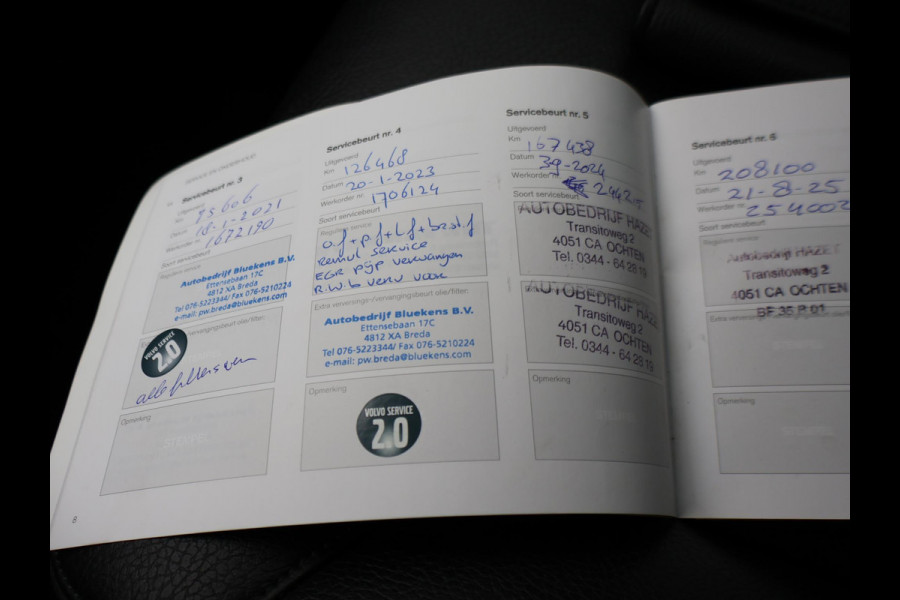 SERVICE EN ONDERHOUD
Servicebeurt nr. 3
Uitgevoerd
Km 95606
Datum 18-1-2021
Werkorder nr. 1672190
Soort servicebeurt
Reguliere service
Autobedrijf Bluekens B.V.
Ettensebaan 17C
4812 XA Breda
Tel 076-5223344/ Fax 076-5210224
e-mail: pw.breda@bluekens.com
verversingsbeurt olie/filter:
VOLVO SERVICE
2.0
alle filters
Opmerking
STEMPEL
6
Servicebeurt nr. 4
Uitgevoerd
Km 126468
Datum 20-1-2023
Werkorder nr. 1706124
Soort servicebeurt
Reguliere service
o.f + p.f + l.f + brst.f
remvl service
EGR pijp vervangen
R.w.b verv voor
Extra verversings-/vervangingsbeurt olie/filter:
Autobedrijf Bluekens B.V.
Ettensebaan 17C
4812 XA Breda
Tel 076-5223344/ Fax 076-5210224
e-mail: pw.breda@bluekens.com
Opmerking
VOLVO SERVICE
2.0
Servicebeurt nr. 5
Uitgevoerd
Km 167438
Datum 3-9-2024
Werkorder nr.
Soort servicebeurt
AUTOBEDRIJF HAZE
Transitoweg 2
4051 CA OCHTEN
Tel. 0344 - 64 28 19
AUTOBEDRIJF HAZE
Transitoweg 2
4051 CA OCHTEN
Tel. 0344 - 64 28 19
Opmerking
Servicebeurt nr. 6
Uitgevoerd
Km 208100
Datum 21-8-25
Werkorder nr. 254002
Soort servicebeurt
Reguliere service
Autobedrijf HAZET
Transitoweg 2
4051 CA OCHTEN
Opmerking